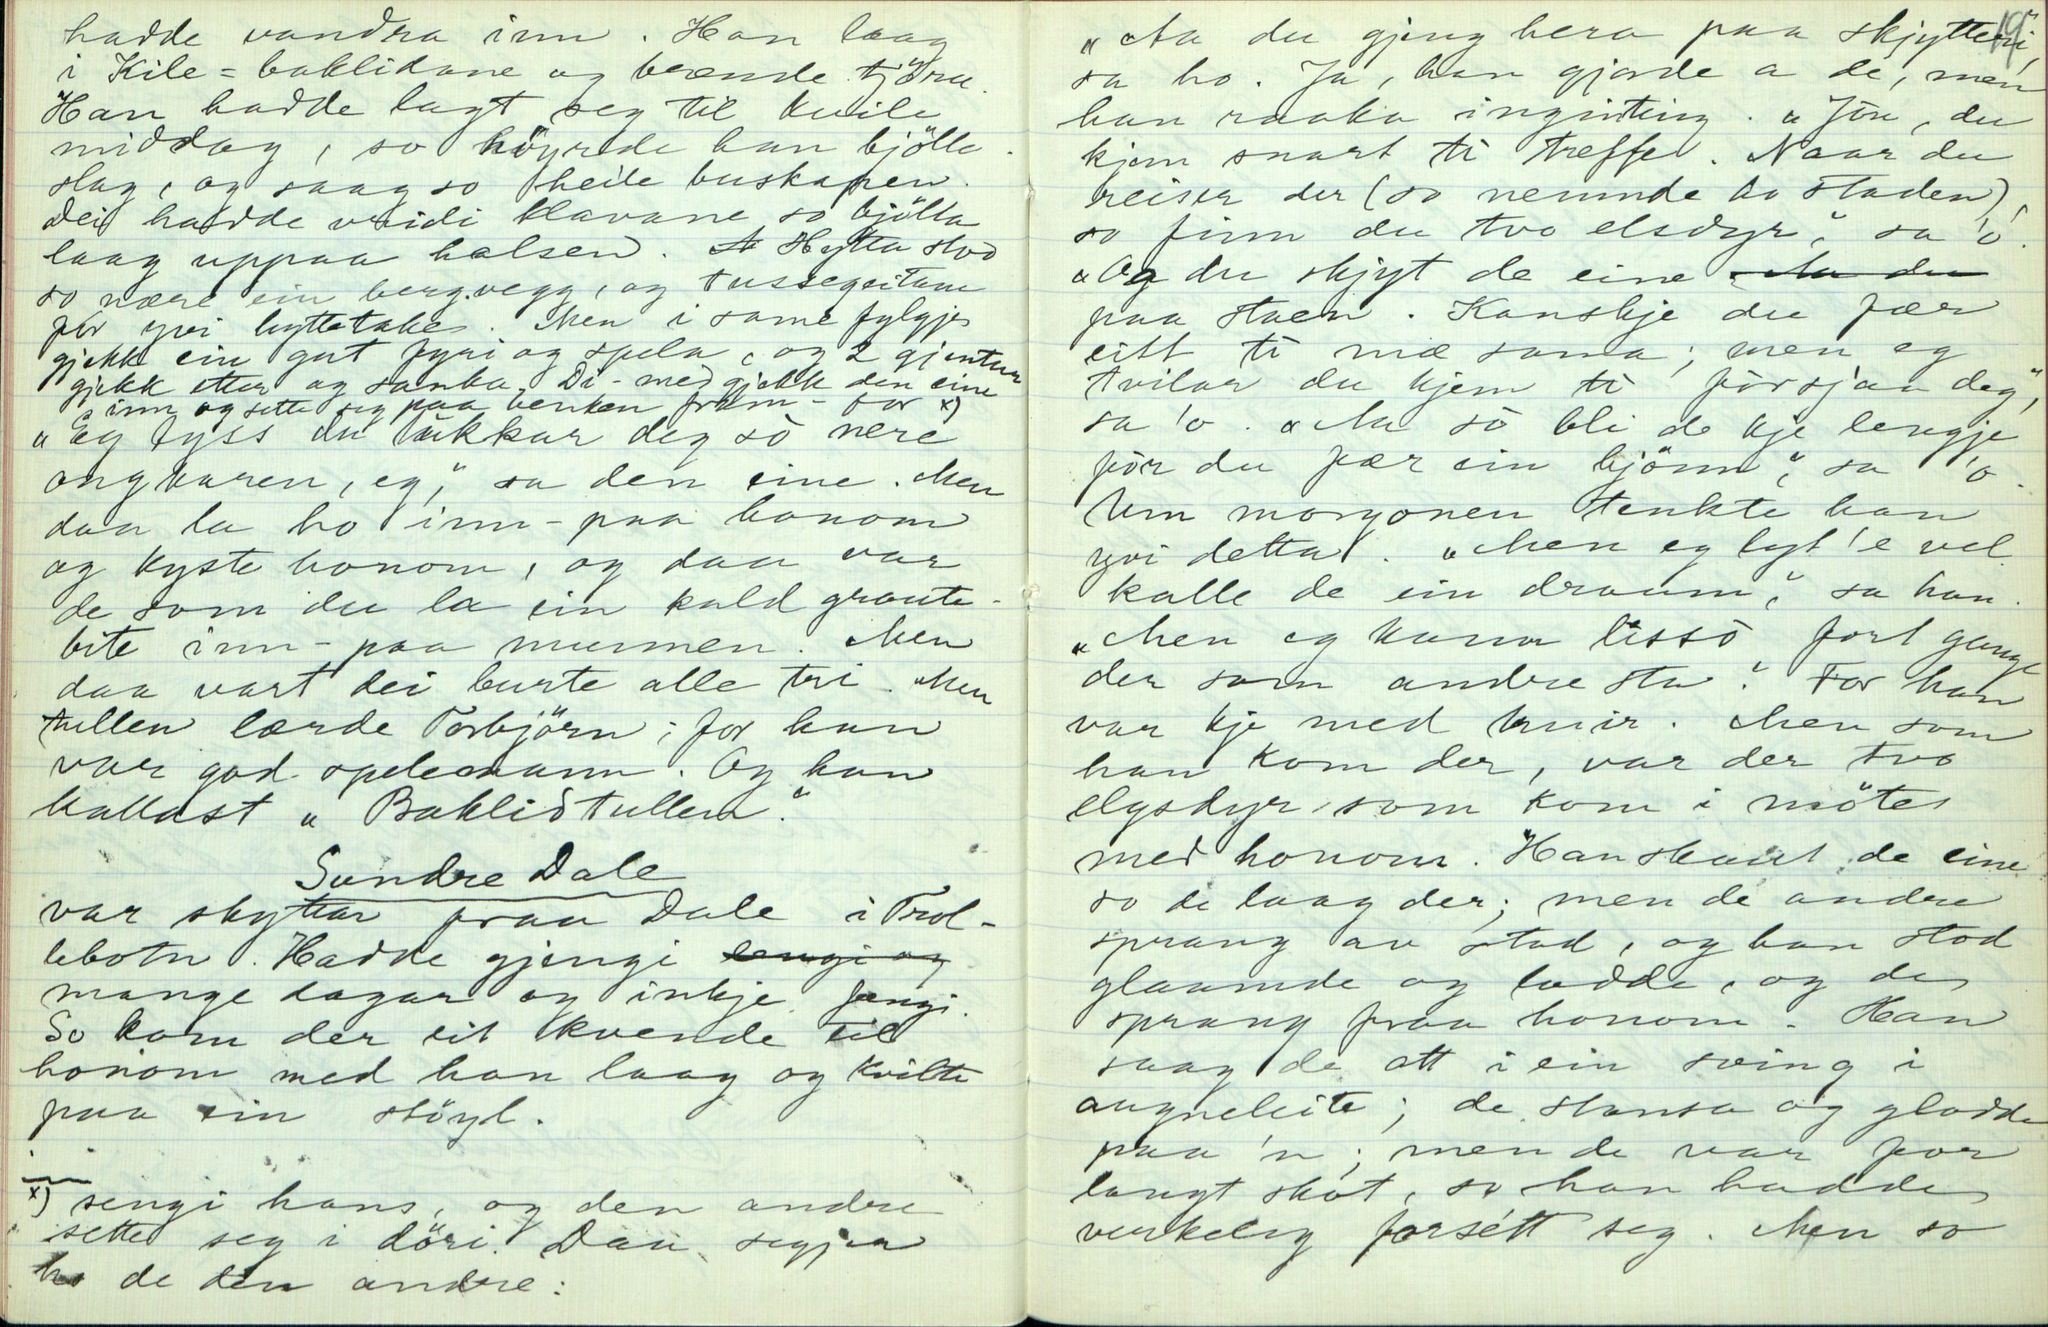 hadde vandra inn. Han laag
i Kile-baklidane og brende tjöru.
Han hadde lagt seg til kvile
middag, so höyrde han bjölle-
slag, og saag so heile buskapen.
Dei hadde vridi klavane so bjölla
laag uppaa halsen. Hytta stod
so nære ein bergvegg, og tussegeitane
fór yvi hyttetake. Men i same fylgje
gjekk ein gut fyri og spela, og 2 gjentur
gjekk etter og sanka. Di-med gjekk den eine
inn og sette seg paa benken fram-for x)
„Eg tyss du lukkar deg so nere
ongkaren, eg," sa den eine. Men
daa la ho inn-paa honom
og kyste honom, og daa var
de som du la ein kald graute-
bite inn-paa munnen. Men
daa vart dei burte alle tri. Men
tullen lærde Torbjörn; for han
var god spelemann. Og han
kallast „Baklidtullen."
Sundre Dale
var skyttar fraa Dale i Trol-
lebotn. Hadde gjengi lengi og
mange dagar og inkje fengi.
So kom der eit kvende til
honom med han laag og kvilte
paa ein stöyl.
x) sengi hans, og den andre
sette seg i döri. Daa segjer
ho de den andre:
19
„Aa du gjeng hera paa skjytteri,"
sa ho. Ja, han gjorde a de, men
han raaka ingenting. „Jöu, du
kjem snart ti treffe. Naar du
reiser der (so nemnde ho staden),
so finn du tvo elsdyr," sa 'o.
„Og du skjyt de eine Aa du
paa staen. Kanskje du fær
eitt ti mæ sama; men eg
tvilar du kjem ti försjaa deg",
sa 'o. „Aa sö bli de kje lengje
för du fær ein bjönn", sa 'o.
Um morgonen tenkte han
yvi detta. „Men eg lyt 'e vel
kalle de ein draum," sa han.
„Men eg kann lissö fort gange
der som andre sta." For han
var kje med kuir. Men som
han kom der, var der tvo
elgsdyr som kom i möte
med honom. Han skaut de eine
so de laag der; men de andre
sprang av stad, og han stod
glaamde og ladde, og de
sprang fraa honom. Han
saag de att i ein sving i
augneleite; de stansa og glodde
paa 'n; men de var for
langt skot, so han hadde
verkeleg forsétt seg. Men so